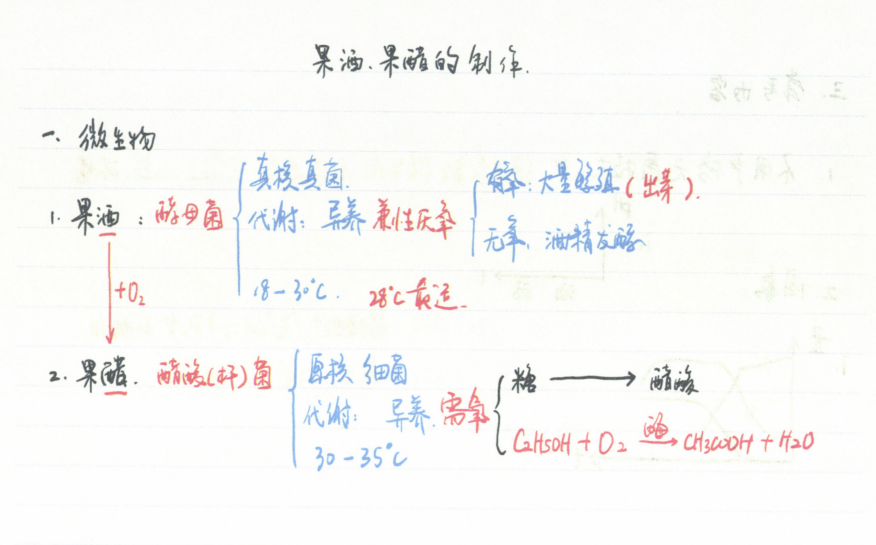 果酒、果醋的制作.
一、微生物
1. 果酒：酵母菌
真核真菌.
代谢：异养 兼性厌氧
有氧：大量繁殖（出芽）.
无氧、酒精发酵
18-30℃. 28℃最适.
+O₂
2. 果醋. 醋酸(杆)菌
原核 细菌
代谢：异养.需氧
30-35℃
糖 → 醋酸
C2H5OH + O2 酶→ CH3COOH + H2O